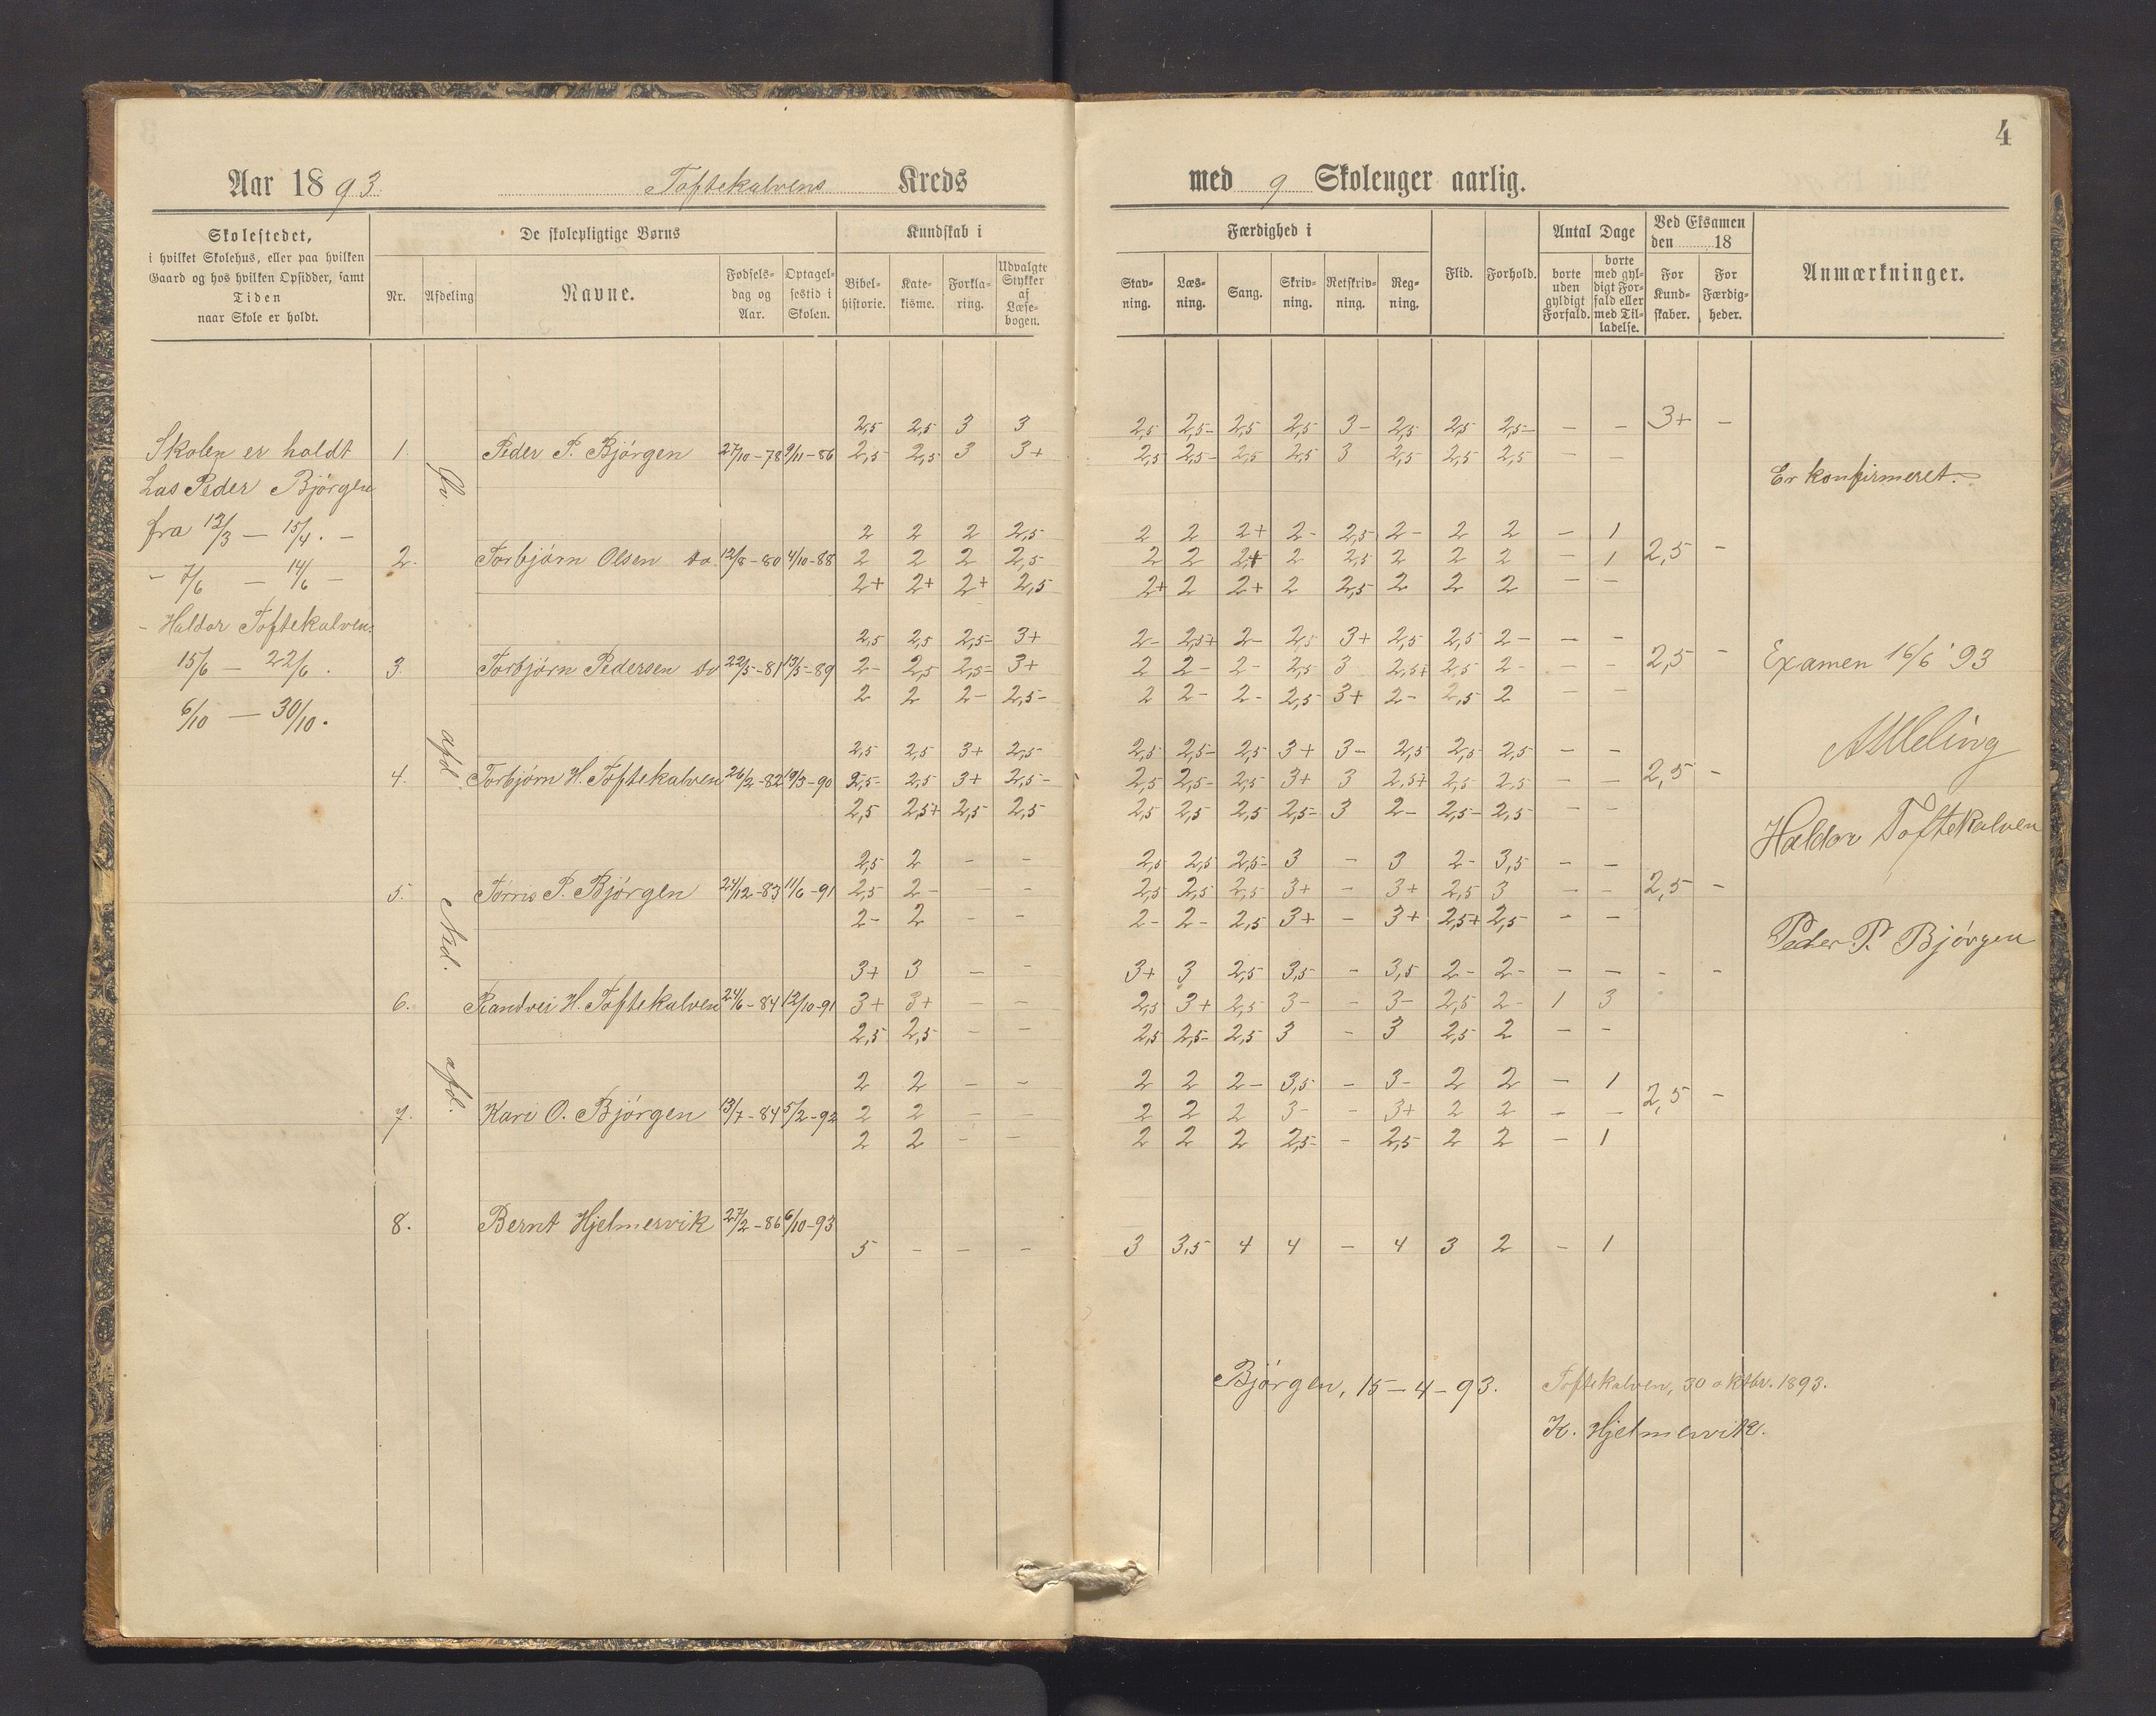 4
Aar 1893. Toftekalvens Kreds
med 9 Skoleuger aarlig.
Skolestedet,
i hvilket Skolehus, eller paa hvilken
Gaard og hos hvilken Opsidder, samt
Tiden
naar Skole er holdt.
De skolepligtige Børns
Nr. Afdeling Navne. Fødselsdag og Aar. Optagelsestid i Skolen.
Kundskab i
Bibelhistorie. Katekisme. Forklaring. Udvalgte Stykker af Læsebogen.
Færdighed i
Stavning. Læsning. Sang. Skrivning. Retskrivning. Regning.
Flid. Forhold.
Antal Dage
borte uden gyldigt Forfald. borte med gyldigt Forfald eller med Tilladelse.
Ved Eksamen
den 18
For Kundskaber. For Færdigheder.
Anmærkninger.
Skolen er holdt
Las Peder Bjørgen
fra 13/3 — 15/4. —
- 7/6 — 14/6 —
- Haldor Toftekalven:
15/6 — 22/6.
6/10 — 30/10.
Øv.
afd.
Ned.
afd.
2,5 2,5 3 3 2,5 2,5- 2,5 2,5 3- 2,5 2,5 2,5- - - 3+ -
1. Peder P. Bjørgen 27/10-78 9/11-86 2,5 2,5 3 3+ 2,5 2,5- 2,5 2,5 3 2,5 2,5 2,5 - -
Er konfirmeret.
2 2 2 2,5 2 2 2+ 2- 2,5 2- 2 2 - 1
2. Torbjørn Olsen do 12/8-80 4/10-88 2 2 2 2,5 2 2 2+ 2 2,5 2 2 2 - 1 2,5 -
2+ 2+ 2+ 2,5 2+ 2 2+ 2 2,5 2 2 2 - -
2,5 2,5 2,5- 3+ 2- 2,5+ 2- 2,5 3+ 2,5 2,5 2- - -
3. Torbjørn Pedersen do 22/5-81 13/5-89 2- 2,5 2,5- 3+ 2 2- 2- 2,5 3 2,5+ 2,5 2- - - 2,5 -
2 2 2- 2,5- 2 2- 2- 2,5 3+ 2- 2,5 2 - -
Examen 16/6 '93
2,5 2,5 3+ 2,5 2,5 2,5- 2,5 3+ 3- 2,5 2,5 2,5 - -
4. Torbjørn H. Toftekalven 26/2-82 19/3-90 2,5- 2,5 3+ 2,5- 2,5 2,5- 2,5 3+ 3 2,5+ 2,5 2,5 - - 2,5 -
2,5 2,5+ 2,5 2,5 2,5 2,5 2,5 2,5- 3 2- 2,5- 2,5 - -
Haldor Toftekalven
2,5 2 - - 2,5 2,5 2,5- 3 - 3 2- 3,5 - -
5. Tørris P. Bjørgen 24/12-83 11/6-91 2,5 2- - - 2,5 2,5 2,5 3+ - 3+ 2,5 3 - - 2,5 -
2- 2 - - 2- 2- 2,5 3+ - 3+ 2,5+ 2,5 - -
Peder P. Bjørgen
3+ 3 - - 3+ 3 2,5 3,5 - 3,5 2- 2- - - - -
6. Randvei H. Toftekalven 24/6-84 12/10-91 3+ 3+ - - 2,5 3+ 2,5 3- - 3- 2,5 2- 1 3
2,5 2,5 - - 2,5 2,5- 2,5 3 - 3 2,5 2 - -
2 2 - - 2 2 2- 3,5 - 3- 2 2 - 1
7. Kari O. Bjørgen 13/7-84 5/2-92 2 2 - - 2 2 2 3- - 3+ 2 2 - - 2,5 -
2 2 - - 2 2 2 2,5- - 2,5 2 2 - 1
8. Bernt Hjelmervik 27/2-86 6/10-93
5 - - - 3 3,5 4 4 - 4 3 2 - 1
Bjørgen, 15-4-93. Toftekalven, 30 oktbr. 1893.
K. Hjelmervik.